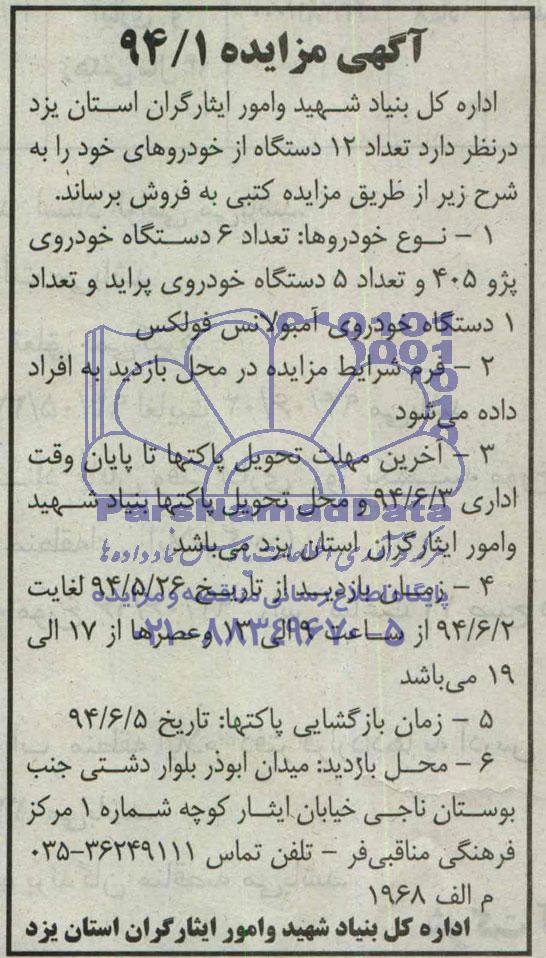 آگهی مزایده ۹۴/۱
اداره کل بنیاد شهید وامور ایثارگران استان یزد
درنظر دارد تعداد ۱۲ دستگاه از خودروهای خود را به
شرح زیر از طریق مزایده کتبی به فروش برساند.
۱ – نوع خودروها: تعداد ۶ دستگاه خودروی
پژو ۴۰۵ و تعداد ۵ دستگاه خودروی پراید و تعداد
۱ دستگاه خودروی آمبولانس فولکس
۲ – فرم شرایط مزایده در محل بازدید به افراد
داده می‌شود
۳ – آخرین مهلت تحویل پاکتها تا پایان وقت
اداری ۹۴/۶/۳ و محل تحویل پاکتها بنیاد شهید
ParsNamadData
وامور ایثارگران استان یزد می‌باشد
۴ – زمان بازدید از تاریخ ۹۴/۵/۲۶ لغایت
پایگاه اطلاع رسانی مناقصه و مزایده
۹۴/۶/۲ از ساعت ۹ الی ۱۳ وعصرها از ۱۷ الی
۰۲۱-۸۸۳۴۹۶۷۰-۵
۱۹ می‌باشد
۵ – زمان بازگشایی پاکتها: تاریخ ۹۴/۶/۵
۶ – محل بازدید: میدان ابوذر بلوار دشتی جنب
بوستان ناجی خیابان ایثار کوچه شماره ۱ مرکز
فرهنگی مناقبی‌فر – تلفن تماس ۳۶۲۴۹۱۱۱-۰۳۵
م الف ۱۹۶۸
اداره کل بنیاد شهید وامور ایثارگران استان یزد